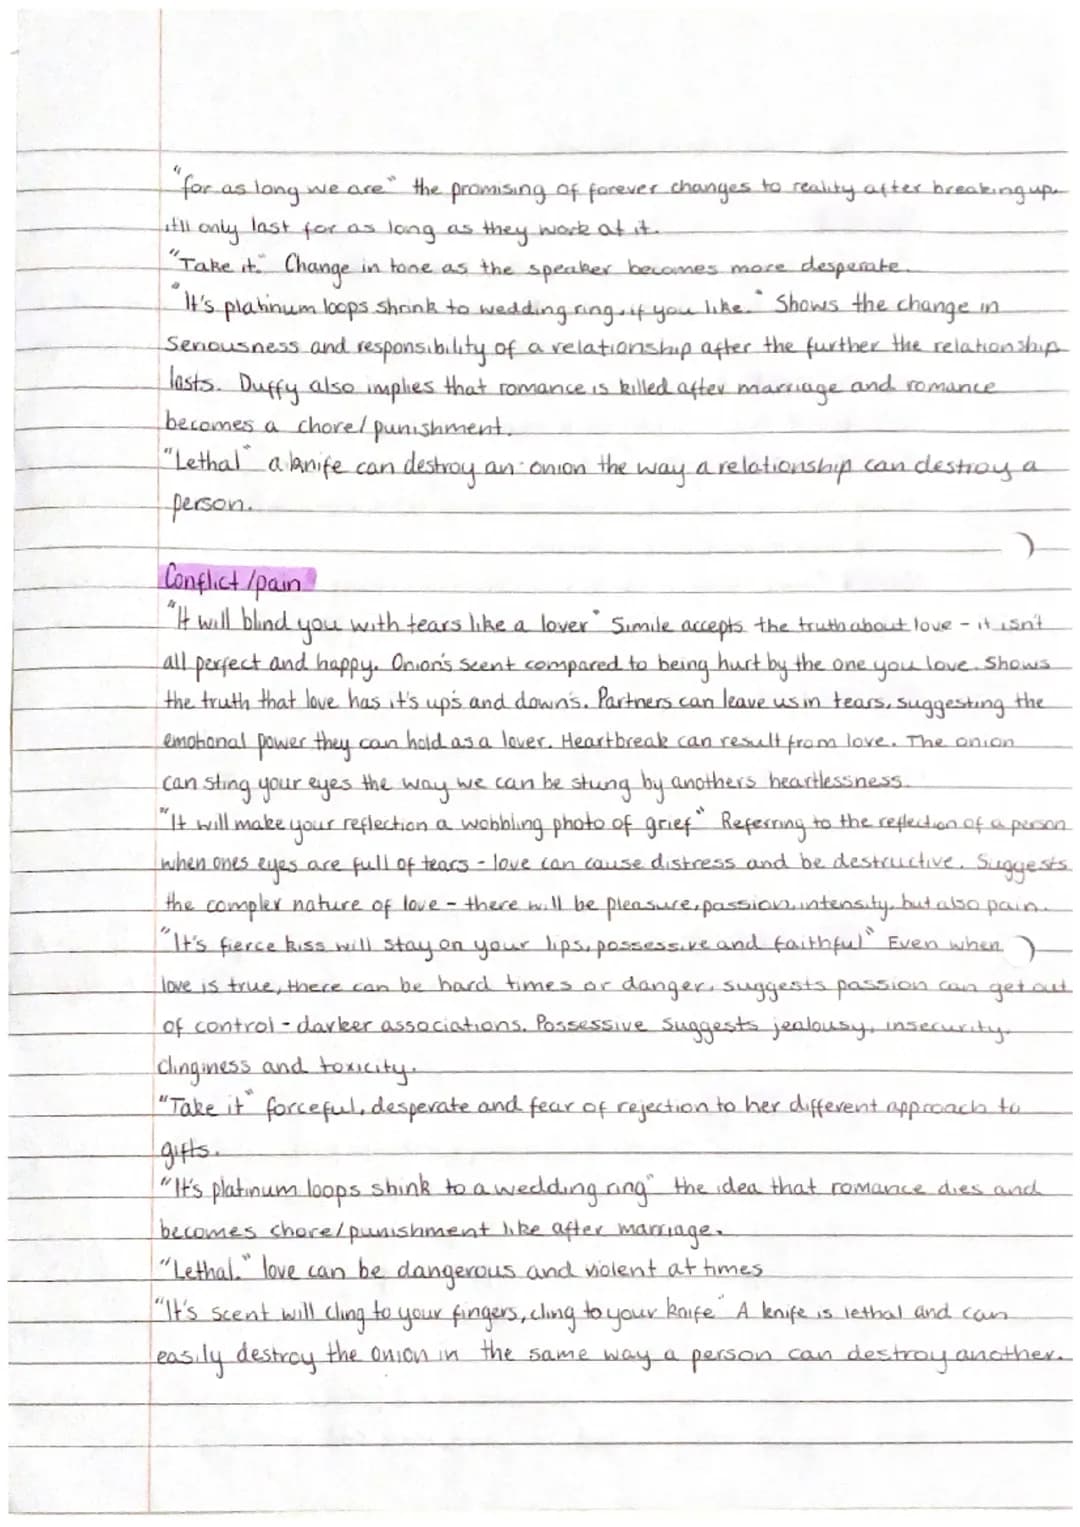 "for as long we are" the promising of forever changes to reality after breaking up.
it'll only last for as long as they work at it.
"Take it." Change in tone as the speaker becomes more desperate.
"It's platinum loops shrink to wedding ring, if you like." Shows the change in
Seriousness and responsibility of a relationship after the further the relationship
lasts. Duffy also implies that romance is killed after marriage and romance
becomes a chore/punishment.
"Lethal" a knife can destroy an onion the way a relationship can destroy a
person.
Conflict/pain
"It will blind you with tears like a lover" Simile accepts the truth about love - it isn't
all perfect and happy. Onion's scent compared to being hurt by the one you love. Shows
the truth that love has it's up's and down's. Partners can leave us in tears, suggesting the
emotional power they can hold as a lover. Heartbreak can result from love. The onion
can sting your eyes the way we can be stung by anothers heartlessness.
"It will make your reflection a wobbling photo of grief" Referring to the reflection of a person
when ones eyes are full of tears - love can cause distress and be destructive. Suggests
the complex nature of love - there will be pleasure, passion, intensity, but also pain.
"It's fierce kiss will stay on your lips, possessive and faithful" Even when
love is true, there can be hard times or danger, suggests passion can get out
of control - darker associations. Possessive suggests jealousy, insecurity,
clinginess and toxicity.
"Take it" forceful, desperate and fear of rejection to her different approach to
gifts.
"It's platinum loops shink to a wedding ring" the idea that romance dies and
becomes chore/punishment like after marriage.
"Lethal." love can be dangerous and violent at times
"It's scent will cling to your fingers, cling to your knife" A knife is lethal and can
easily destroy the onion in the same way a person can destroy another.